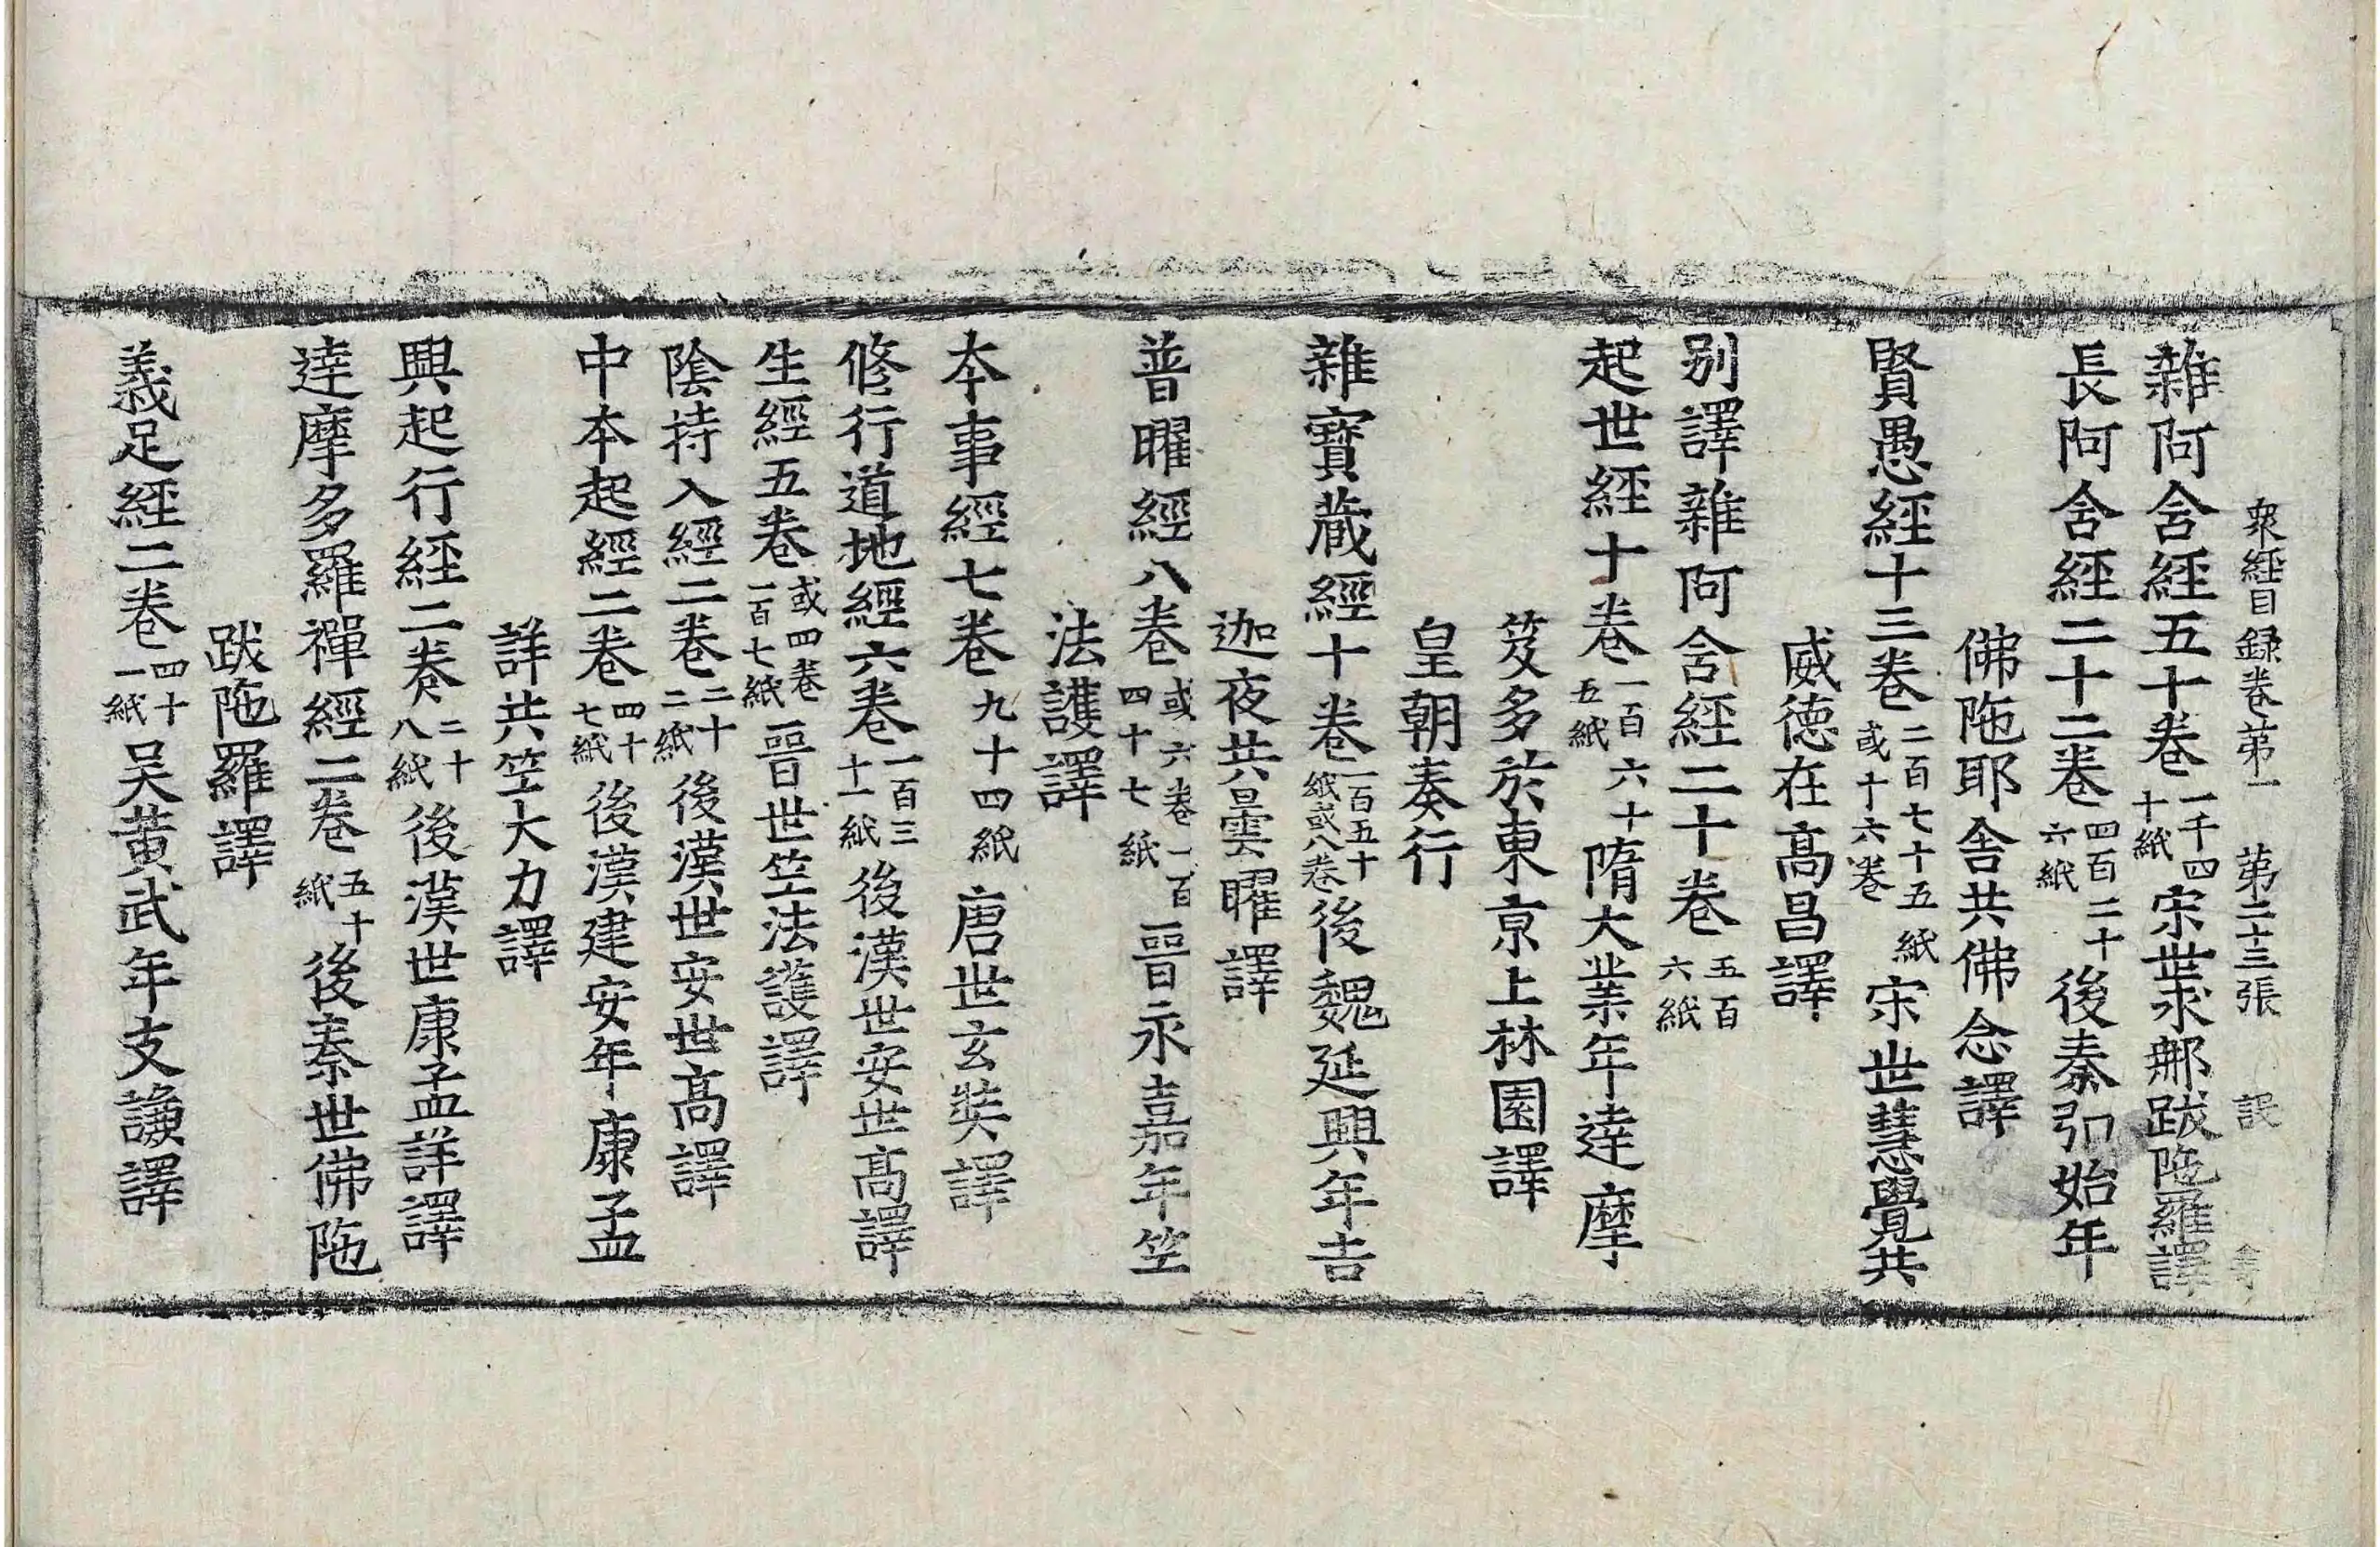 衆經目録卷第一　第二十三張　訤
雜阿含經五十卷一千四十紙宋世求那跋陁羅譯
長阿含經二十二卷四百二十六紙後秦弘始年
佛陁耶舎共佛念譯
賢愚經十三卷二百七十五紙或十六卷宋世慧覺共
威德在髙昌譯
别譯雜阿含經二十卷五百六紙
起世經十卷一百六十五紙隋大業年達摩
笈多於東京上林園譯
皇朝奏行
雜寳藏經十卷一百五十紙或八卷後魏延興年吉
迦夜共曇曜譯
普曜經八卷或六卷一百四十七紙晉永嘉年竺
法護譯
本事經七卷九十四紙唐世玄奘譯
修行道地經六卷一百三十一紙後漢世安世髙譯
生經五卷或四卷一百七紙晉世竺法護譯
陰持入經二卷二十二紙後漢世安世髙譯
中本起經二卷四十七紙後漢建安年康孟
詳共竺大力譯
興起行經二卷二十八紙後漢世康孟詳譯
達摩多羅禪經二卷五十紙後秦世佛陁
跋陁羅譯
義足經二卷四十一紙吴黄武年支謙譯